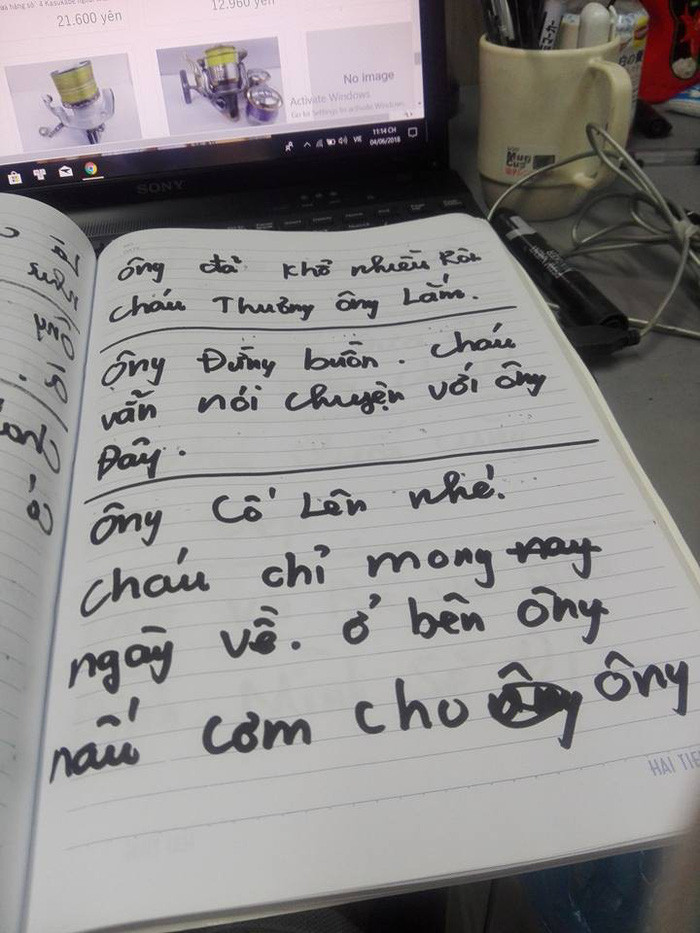 21.600 yên
12.960 yên
No image
Activate Windows
Go to Settings to activate Windows.
11:14 CH
VIE
04/06/2018
SONY
Mug
Cup
ông đả khổ nhiều Rồi
cháu Thương ông Lắm.
ông Đừng buồn. cháu
vẫn nói chuyện với ông
Đây.
ông Cố Lên nhé.
cháu chỉ mong nay
ngày về. ở bên ông
nấu cơm cho ông ông
HẢI TIẾ